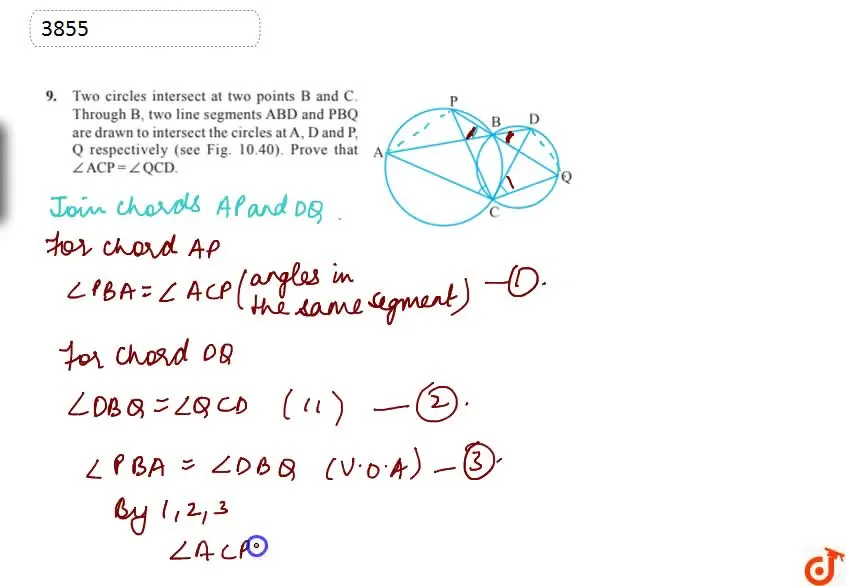 3855
9. Two circles intersect at two points B and C.
Through B, two line segments ABD and PBQ
are drawn to intersect the circles at A, D and P,
Q respectively (see Fig. 10.40). Prove that
∠ACP = ∠QCD.
P
B
D
A
Q
C
Join chords AP and DQ.
For chord AP
∠PBA = ∠ACP (angles in
the same segment) — ①.
For chord DQ
∠DBQ = ∠QCD (11) — ②.
∠PBA = ∠DBQ (V.O.A) — ③.
By 1, 2, 3
∠ACP